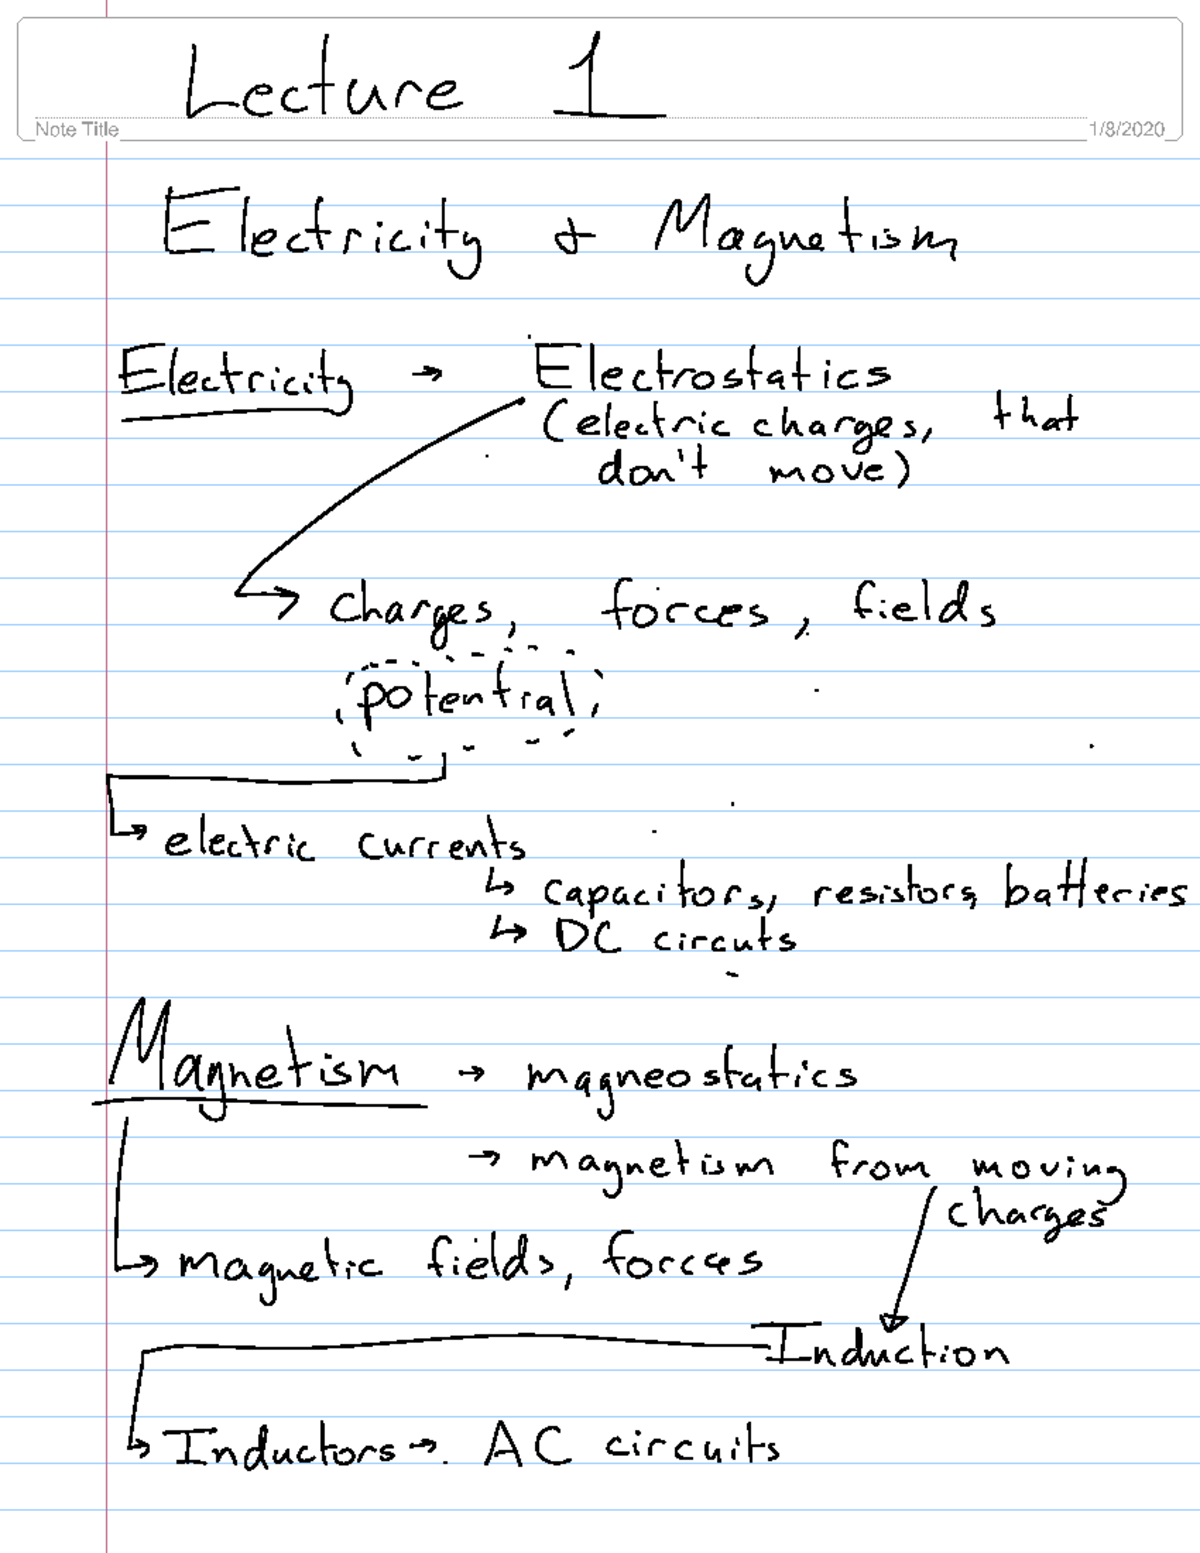 Lecture 1
Note Title
1/8/2020
Electricity & Magnetism
Electricity → Electrostatics
(electric charges, that
don't move)
↳ charges, forces, fields
potential
↳ electric currents
↳ capacitors, resistors, batteries
↳ DC circuts
Magnetism → magneostatics
→ magnetism from moving
charges
↳ magnetic fields, forces
Induction
↳ Inductors → AC circuits